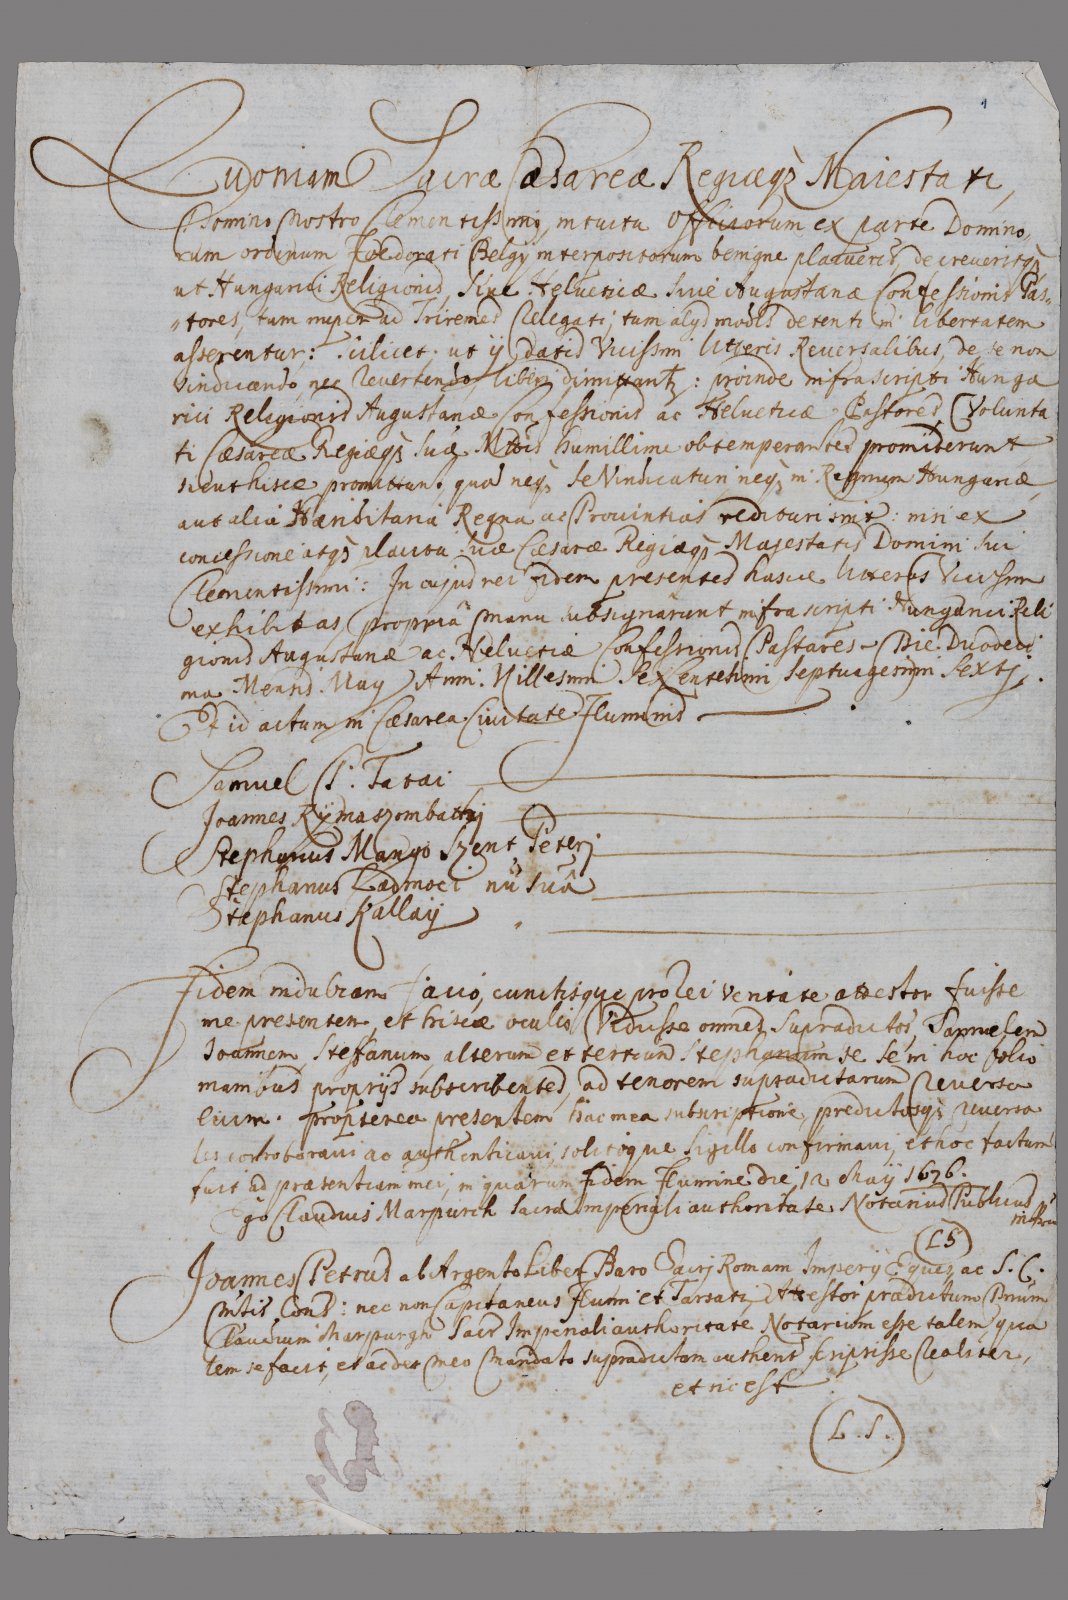 Quoniam Sacræ Cæsareæ Regiæq3 Maiestati,
Domino Nostro Clementissimo, intuitu Officiorum ex parte Domino,,
rum ordinum Fœderati Belgÿ interpositorum benigne placuerit, decreveritq3
ut Hungarici Religionis, sive Helveticæ sive Augustanæ Confessionis Pas-
"tores, tum nuper ad Triremes Relegati, tum alÿs modis detenti in libertatem
asserentur: scilicet: ut ÿ, datis Vicissim litteris Reversalibus, de se non
vindicando nec Revertendo, liberi dimittant: proinde infra scripti Hunga
rici Religionis Augustanæ Confessionis ac Helveticæ Pastores, Volunta
ti Cæsareæ Regiæq3 Suæ Mttis humillime obtemperantes promiserunt
sicut hisce promittunt, quod neq3 se Vindicaturi neq3 in Regnum Hungariæ,
aut alia Hæriditaria Regna ac Provintias redituri sint: nisi ex
concessione atq3 placita suæ Cæsaræ Regiæq3 Majestatis Domini sui
Clementissimi: In cujus rei fidem presentes hasce litteras Vicissim
exhibitas propriâ manu subsignârunt infra scripti Hungarici Reli
gionis Augustanæ ac Helvetiæ Confessionis Pastares Die Duodeci
ma Mensis May Anni Millesimi Sexentesimi septuagesimi Sexti.
Et id actum in Cæsarea Civitate Fluminis
Samuel P. Tatai
Joannes Rÿmaszombathÿ
Stephanus Mango Szent Peteri
Stephanus Ladmoci mũ suâ
Stephanus Kallaÿ
Fidem indubiam facio, cunctisque pro rei veritate attestor fuisse
me presentem, et hisce oculis Vidisse omnes supradictos, Samuelem
Joannem Steffanum, alterum et tertium Stephanum se se in hoc folio
manibus proprÿs subscribentes, ad tenorem supradictarum Reversa
lium. propterea presentem hac mea subscriptione, predictasq3 reversa
les corroboravi ac authenticavi, solitoque sigillo confirmavi, et hoc factum
fuit ad præsentiam mei, in quarum fidem Flumine die, 12 Maÿ 1676.
Ego Claudius Marpurch Sacra imperiali authoritate Notarius Publicus
LS
Joannes Petrus ab Argento Liber Baro Sacrj Romani Imperÿ Eques, ac S. C.
Mttis Cons: nec non Capitaneus Flumi et Tarsatj Attestor prædictum Dnum
Claudium Marpurgh Sacr Imperiali authoritate Notarium esse talem qua
lem se facit, et ac de meo Mandato supradictam authent scripsisse Realiter,
et sic est
L. S.